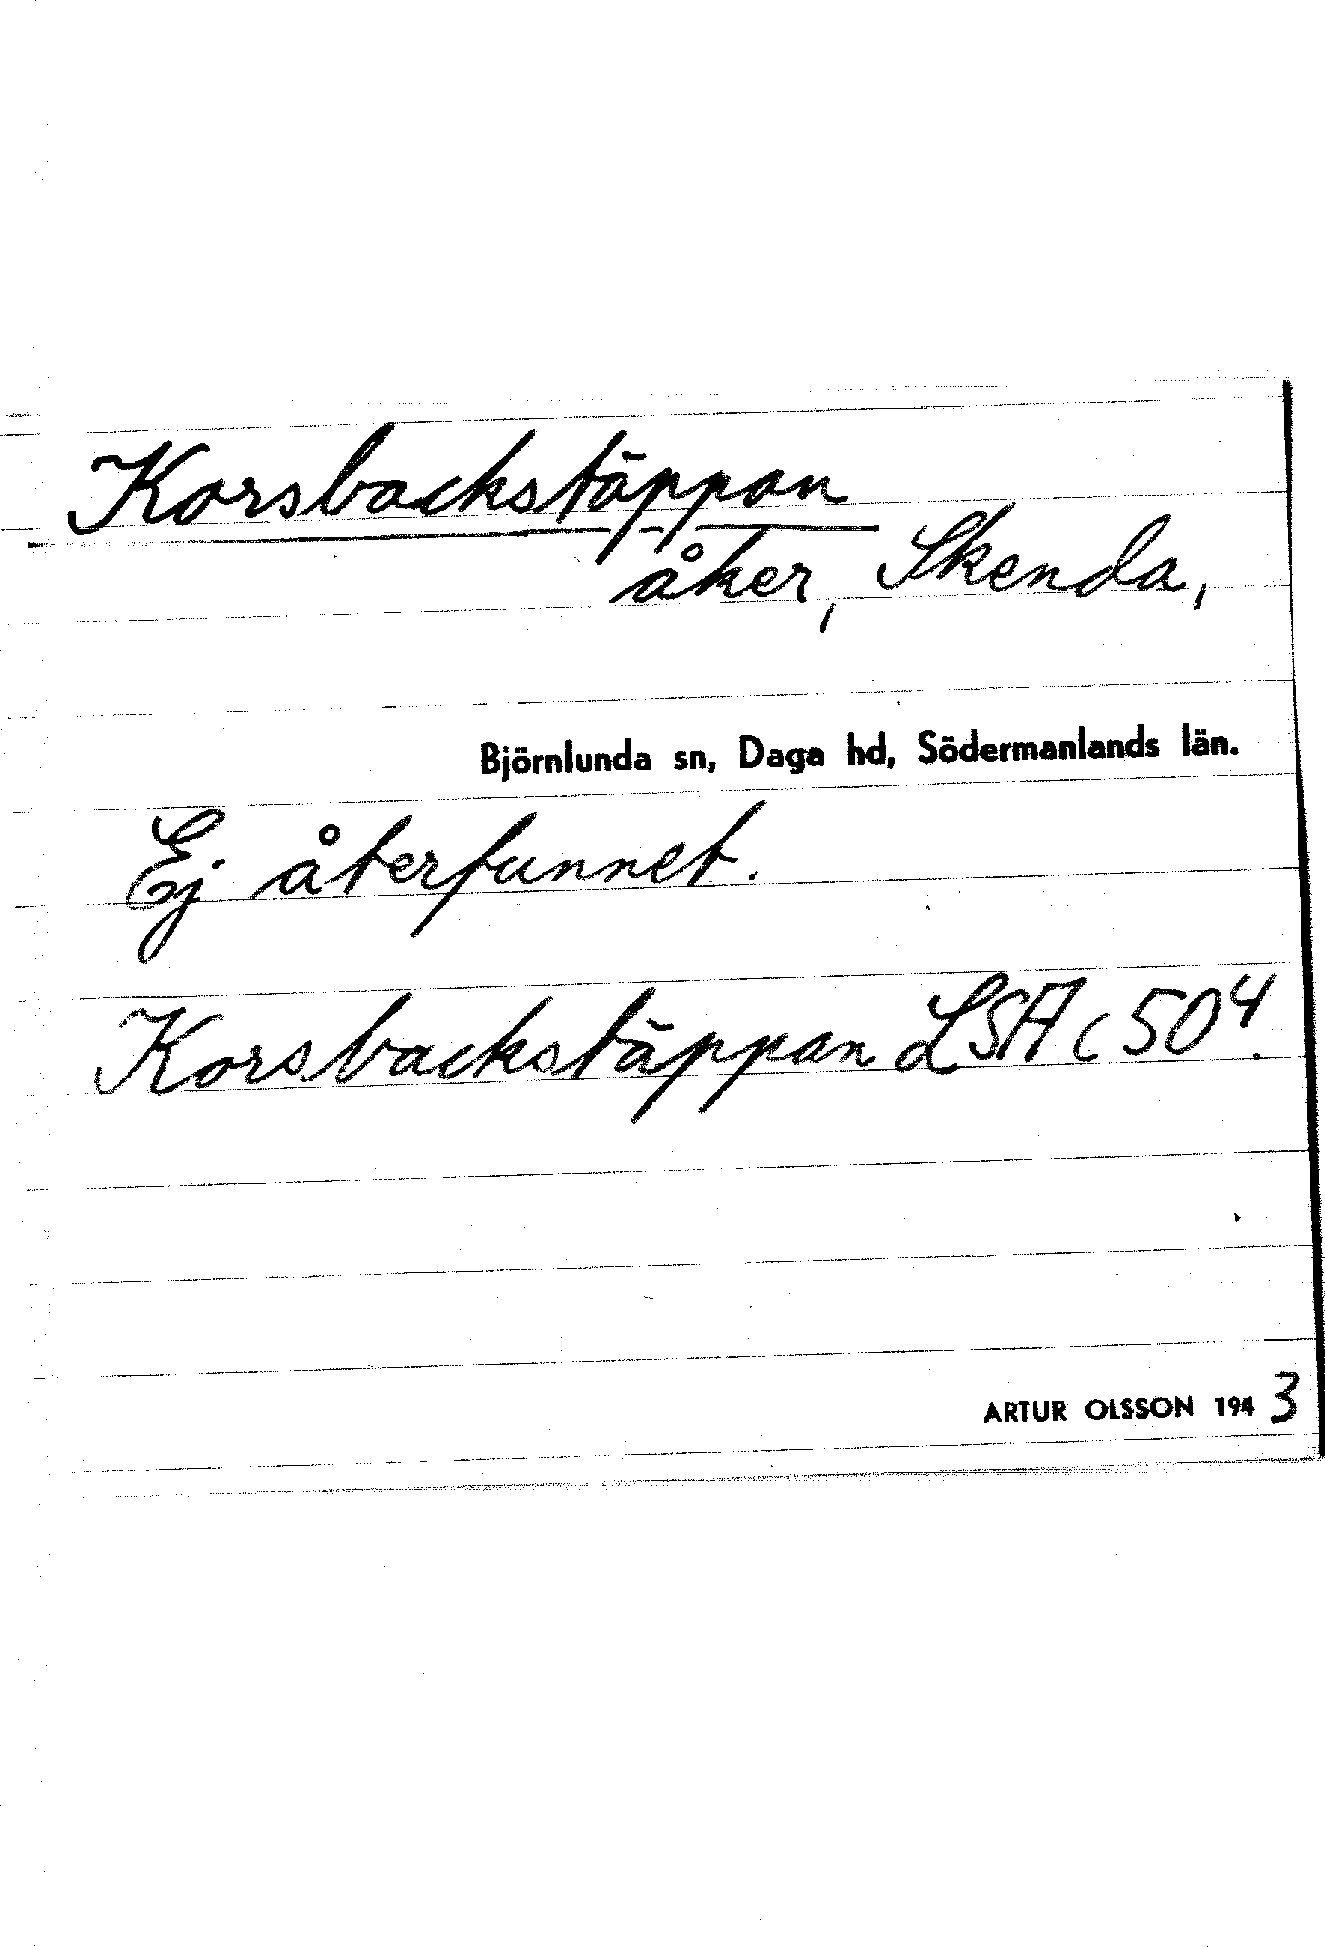 Korsbackstäppan
åker, Skenda,
Björnlunda sn, Daga hd, Södermanlands län.
Ej återfunnet.
Korsbackstäppan LSA c 50⁴.
ARTUR OLSSON 1943